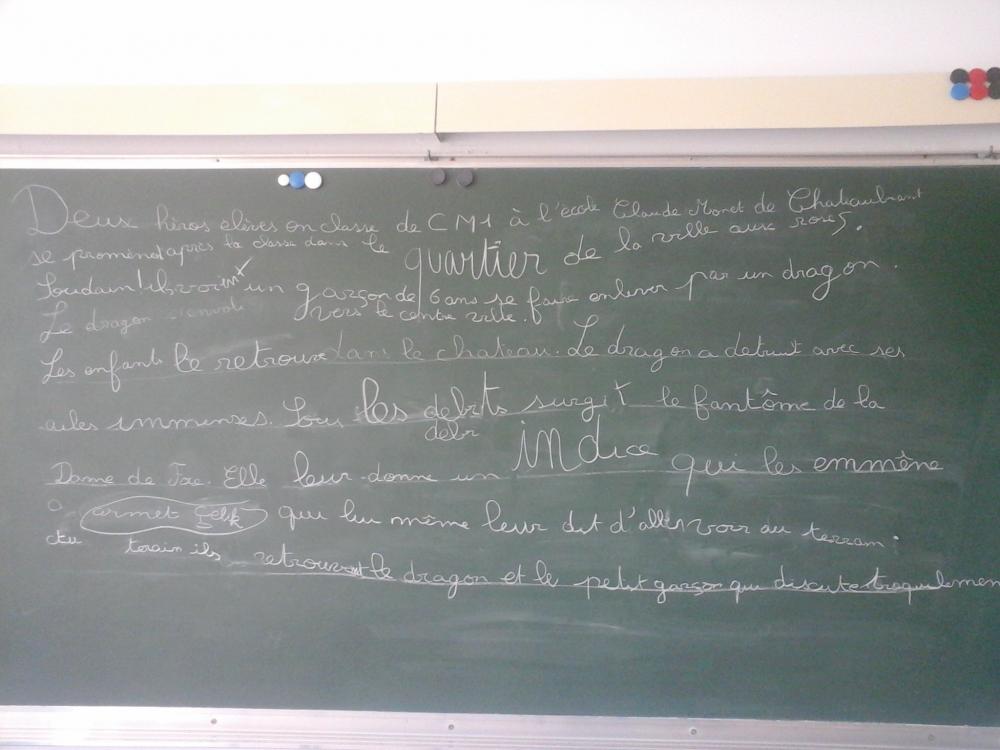 Deux héros elèves en classe de CM1 à l'école Claude Monet de Chateaubriant
se promènet après la classe dans le quartier de la ville aux roses.
Soudain un garçon de 6 ans se faire enlever par un dragon.
Le dragon s'envole vers le centre ville.
Les enfants le retrouve dans le chateau. Le dragon a detruit avec ses
ailes immenses. Sous les debrits surgit le fantôme de la
debr
Dame de Foie. Elle leur donne un indice qui les emmène
a armet Çelik qui lui même leur dit d'aller voir au terrain.
au terain ils retrouvent le dragon et le petit garçon qui discute traquilement